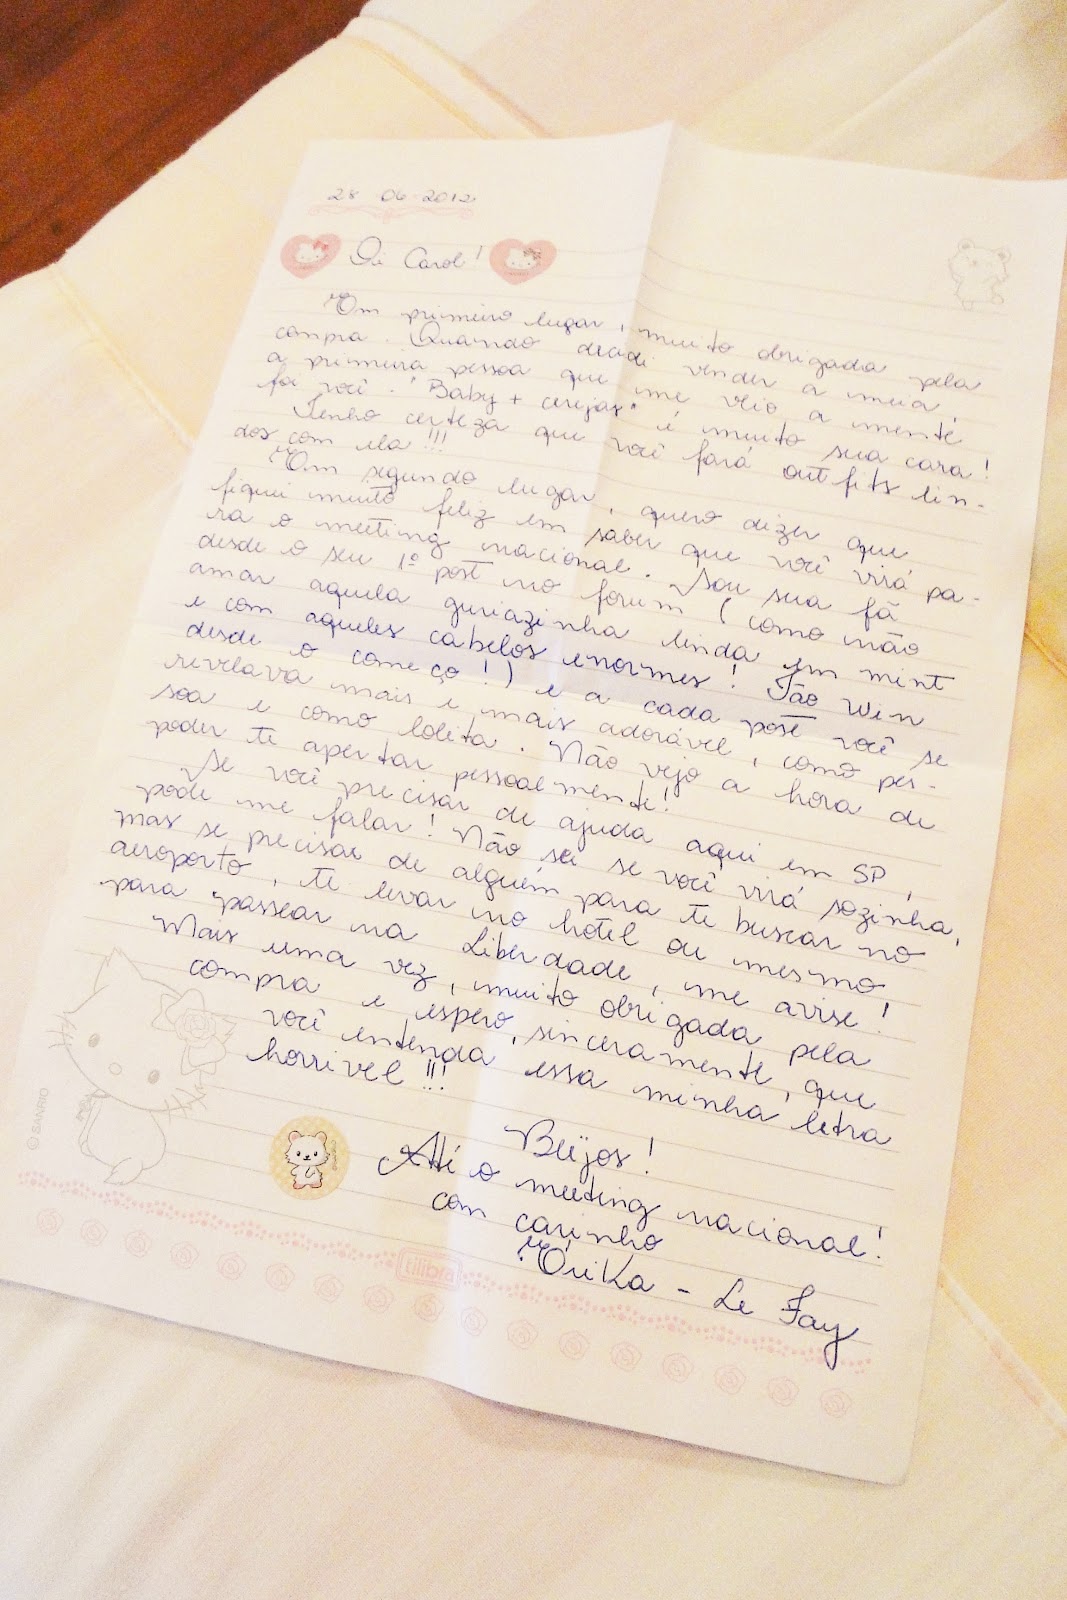 28 06 2012
Oi Carol!
Em primeiro lugar, muito obrigada pela
compra. Quando decidi vender a meia,
a primeira pessoa que me veio a mente
foi você. "Baby + cerejas" é muito sua cara!
Tenho certeza que você fará outfits lin-
dos com ela!!!
Em segundo lugar, quero dizer que
fiquei muito feliz em saber que você virá pa-
ra o meeting nacional. Sou sua fã
desde o seu 1º post no forum (como não
amar aquela guriazinha linda em mint
e com aqueles cabelos enormes! Tão win
desde o começo!) e a cada post você se
revelava mais e mais adorável, como pes-
soa e como lolita. Não vejo a hora de
poder te apertar pessoalmente!
Se você precisar de ajuda aqui em SP,
pode me falar! Não sei se você virá sozinha,
mas se precisar de alguém para te buscar no
aeroporto, te levar no hotel ou mesmo
para passear na Liberdade, me avise!
Mais uma vez, muito obrigada pela
compra e espero, sinceramente, que
você entenda essa minha letra
horrivel!!!
Beijos!
Até o meeting nacional!
com carinho
Érika - Le Fay
© SANRIO
tilibra